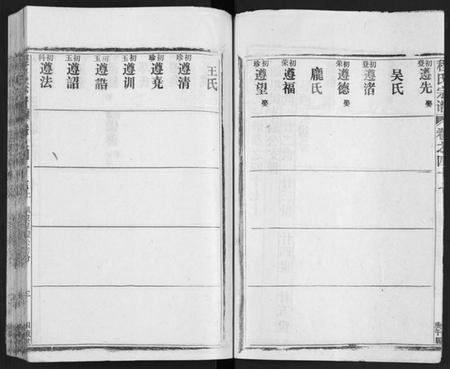 程氏宗譜 卷之四十七
初登 遵先 娶
吴氏
初登 遵渚
初榮 遵德 娶
龐氏
初榮 遵福
初珍 遵望 娶
王氏
初珍 遵清
初珍 遵堯
初玉 遵訓
初玉 遵誥
初玉 遵詔
初科 遵法